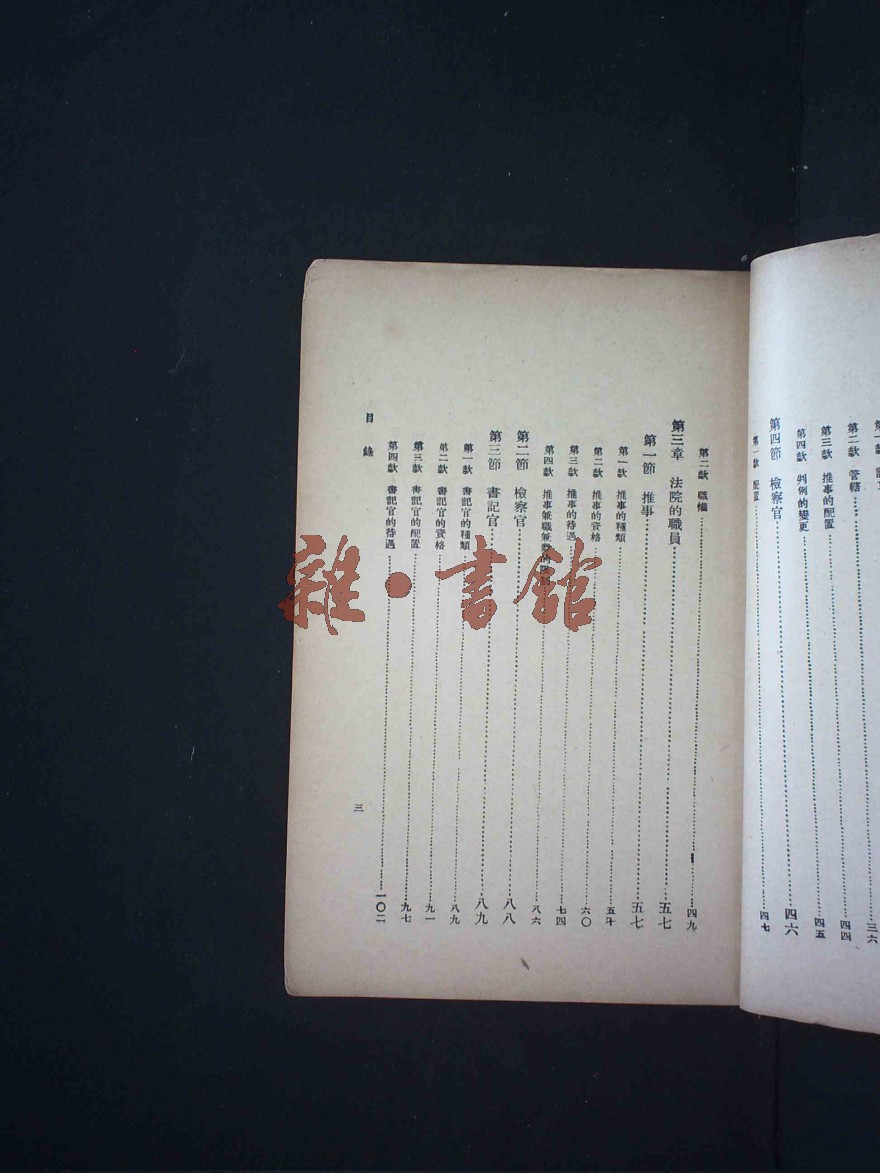 第二款 管轄……四四
第三款 推事的配置……四五
第四款 判例的變更
第四節 檢察官……四六
第一款 配置……四七
第二款 職權……四九
第三章 法院的職員……五七
第一節 推事……五七
第一款 推事的種類
第二款 推事的資格……六〇
第三款 推事的待遇……七四
第四款 推事兼職兼業的……八六
第二節 檢察官……八八
第三節 書記官……八九
第一款 書記官的種類……八九
第二款 書記官的資格……九一
第三款 書記官的配置……九七
第四款 書記官的待遇……一〇二
目錄
三
雜·書館